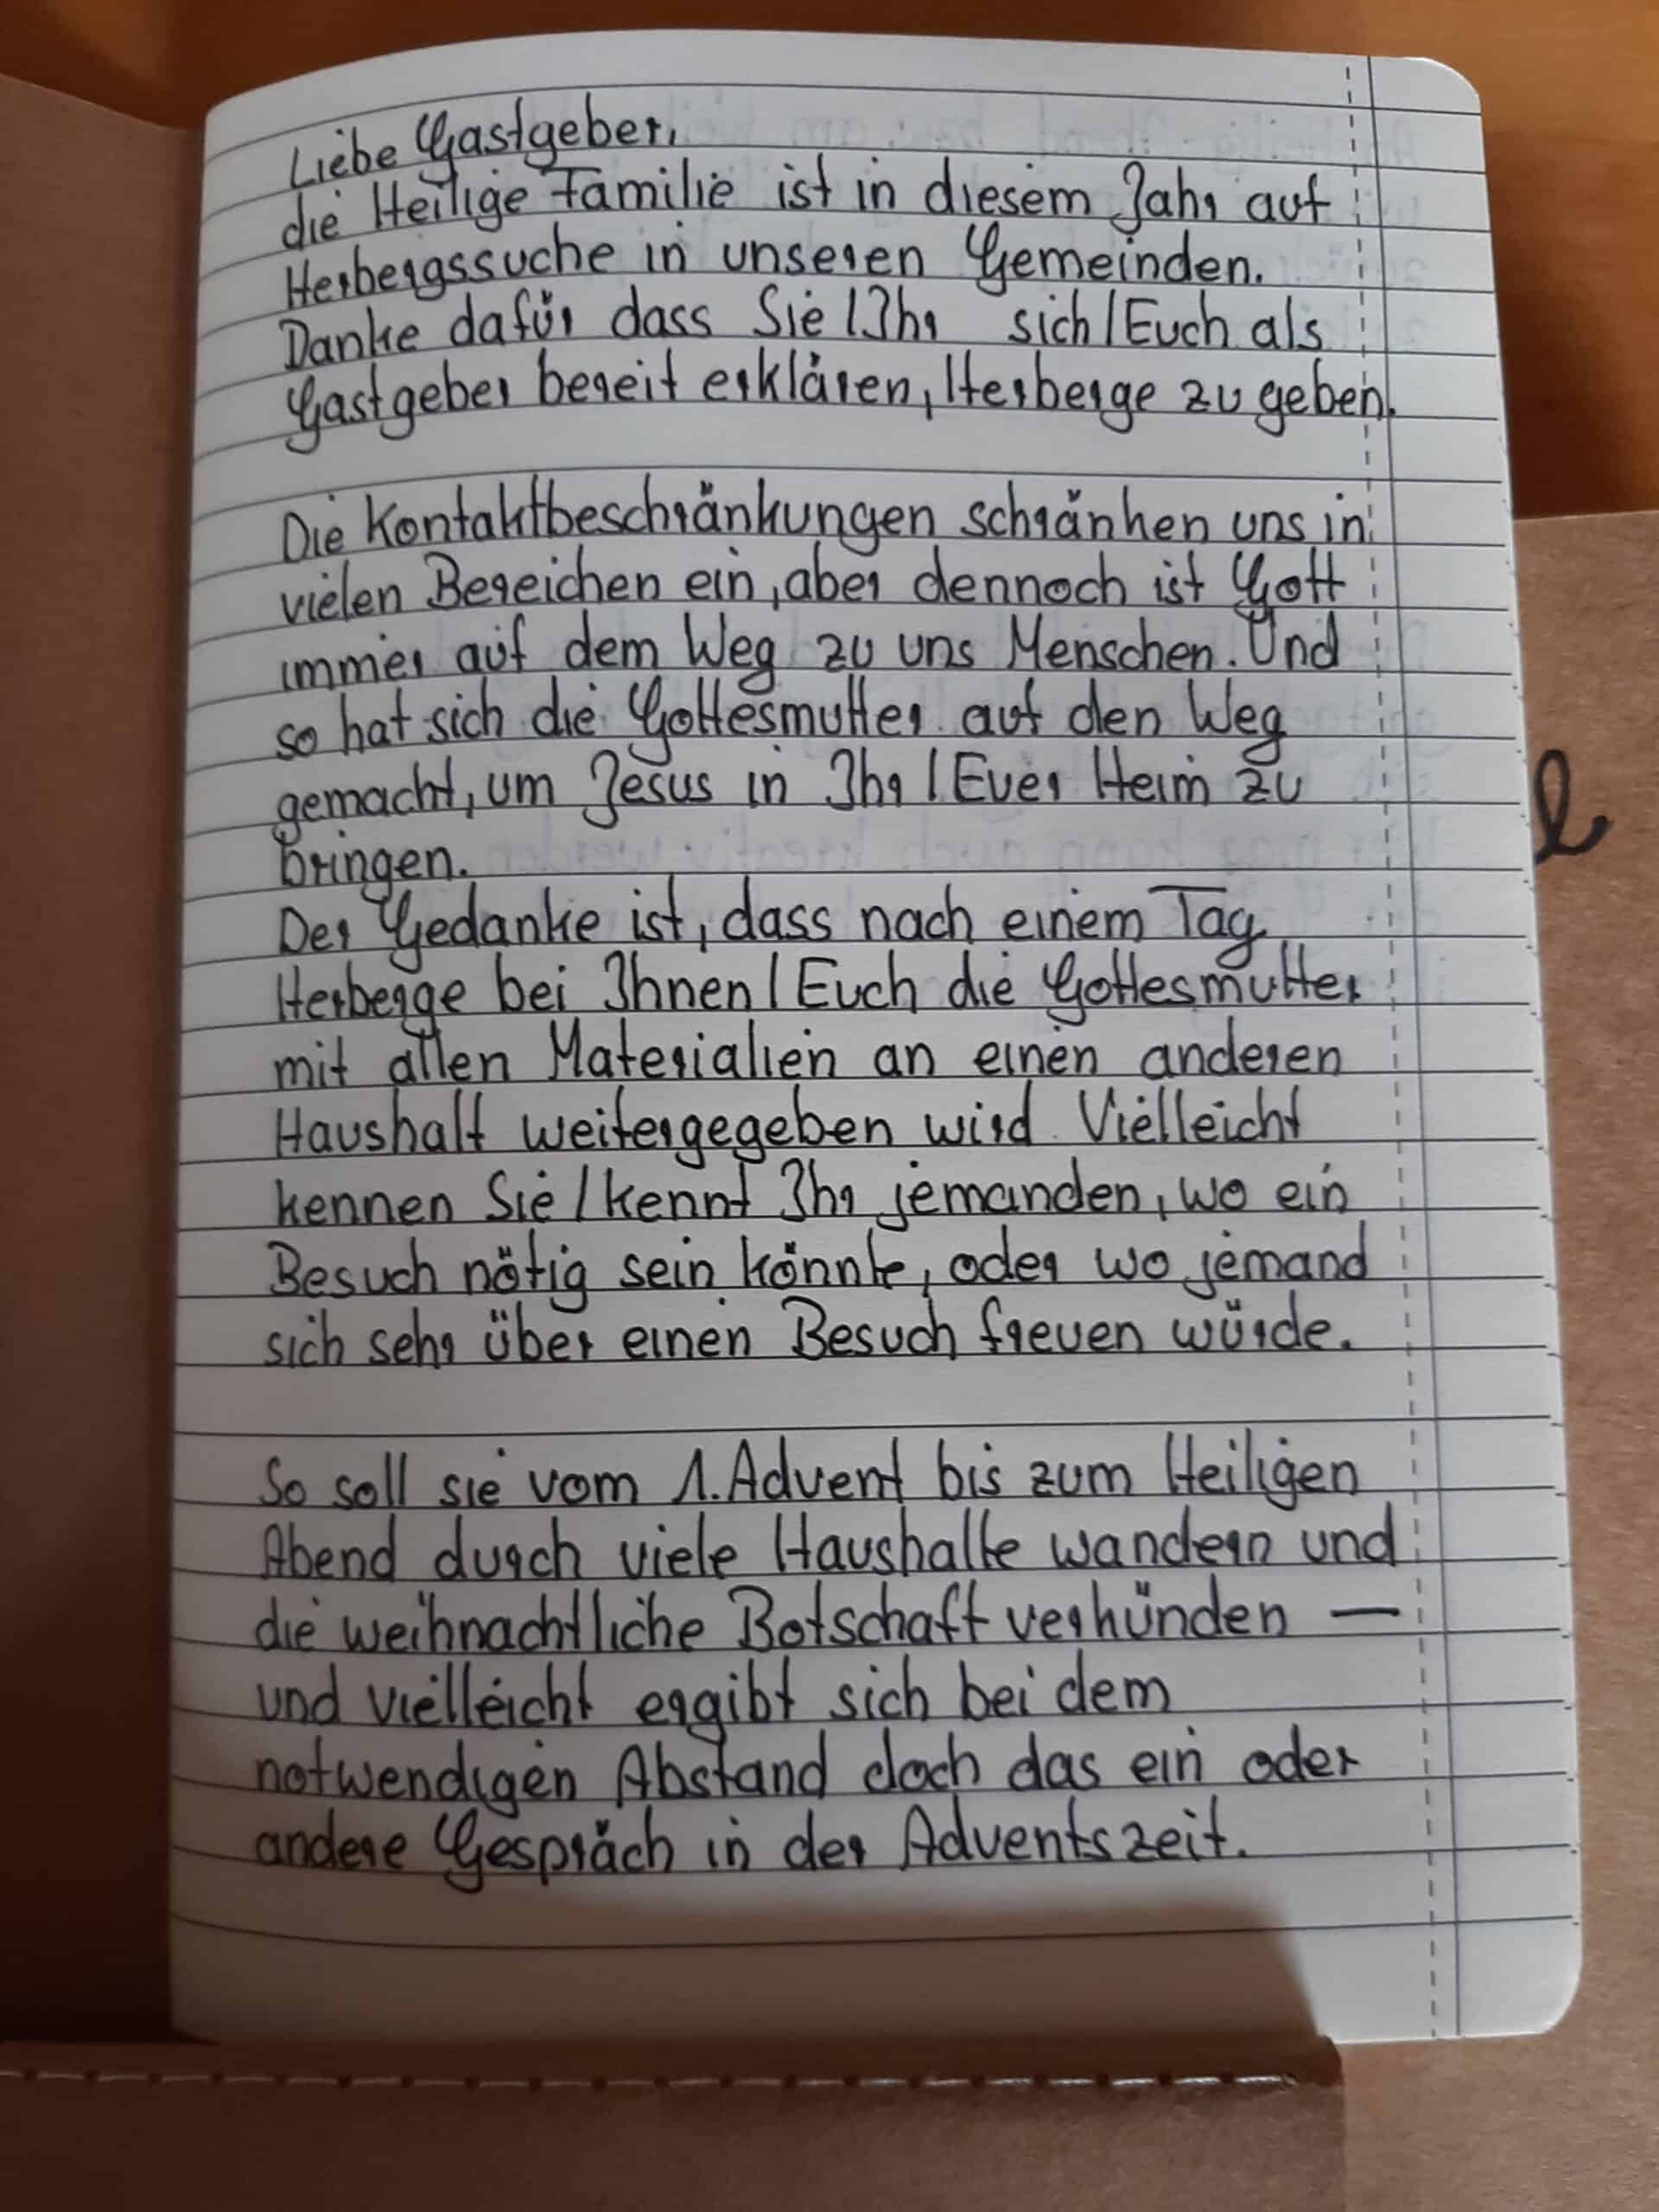 Liebe Gastgeber,
die Heilige Familie ist in diesem Jahr auf
Herbergssuche in unseren Gemeinden.
Danke dafür dass Sie/Ihr sich/Euch als
Gastgeber bereit erklären, Herberge zu geben.
Die Kontaktbeschränkungen schränken uns in
vielen Bereichen ein, aber dennoch ist Gott
immer auf dem Weg zu uns Menschen. Und
so hat sich die Gottesmutter auf den Weg
gemacht, um Jesus in Ihr/Euer Heim zu
bringen.
Der Gedanke ist, dass nach einem Tag
Herberge bei Ihnen/Euch die Gottesmutter
mit allen Materialien an einen anderen
Haushalt weitergegeben wird. Vielleicht
kennen Sie/kennt Ihr jemanden, wo ein
Besuch nötig sein könnte, oder wo jemand
sich sehr über einen Besuch freuen würde.
So soll sie vom 1. Advent bis zum Heiligen
Abend durch viele Haushalte wandern und
die weihnachtliche Botschaft verkünden —
und vielleicht ergibt sich bei dem
notwendigen Abstand doch das ein oder
andere Gespräch in der Adventszeit.